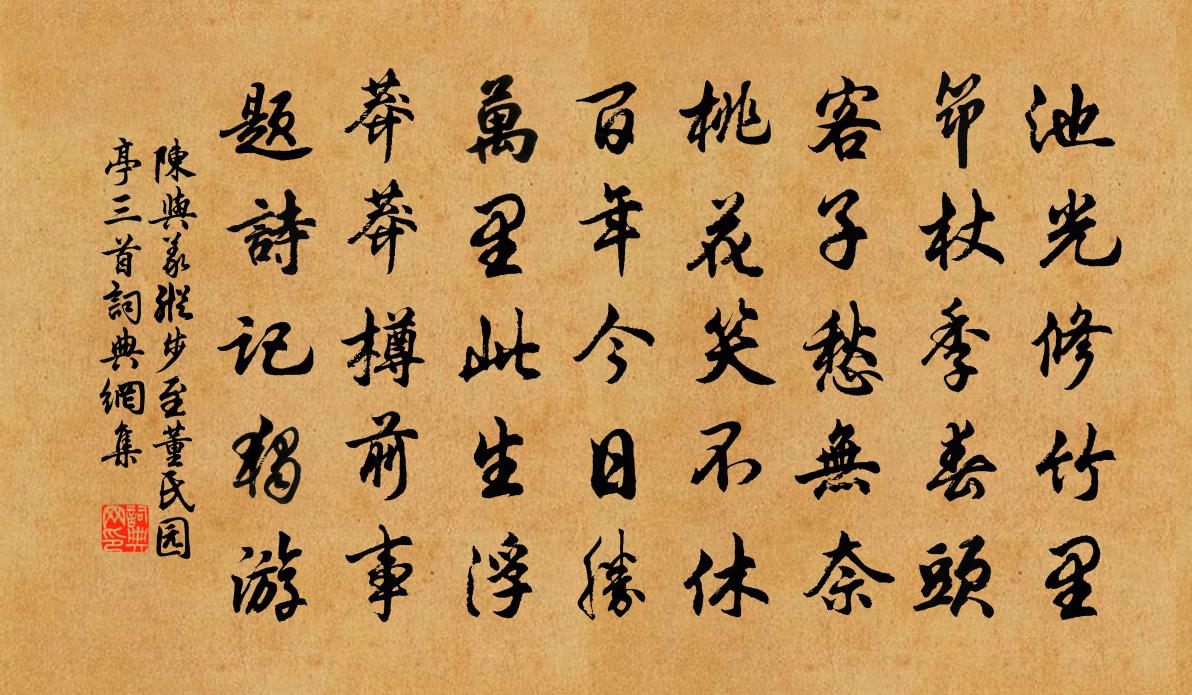 池光修竹里
筇杖季春頭
客子愁無奈
桃花笑不休
百年今日勝
萬里此生浮
莽莽樽前事
題詩記獨游
陳與義縱步至董氏园
亭三首詞典網集
詞典網印